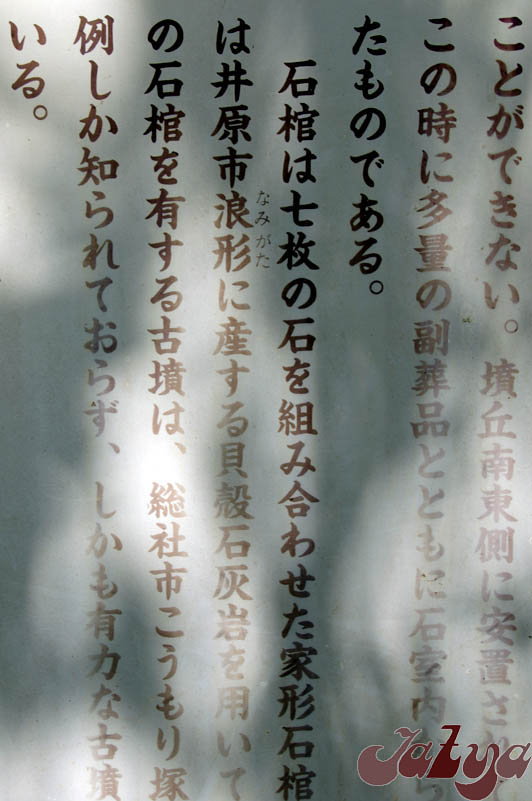 ことができない。墳丘南東側に安置され
この時に多量の副葬品とともに石室内
たものである。
石棺は七枚の石を組み合わせた家形石棺
は井原市浪形に産する貝殻石灰岩を用いて
なみがた
の石棺を有する古墳は、総社市こうもり塚
例しか知られておらず、しかも有力な古墳
いる。
Jatya